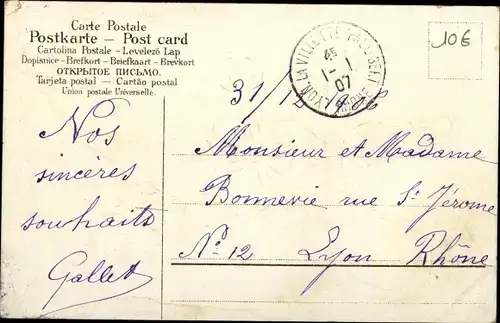 Carte Postale
Postkarte — Post card
Cartolina Postale - Levelező Lap
Dopisnice - Brefkort - Briefkaart - Brevkort
ОТКРЫТОЕ ПИСЬМО.
Tarjeta postal — Cartão postal
Union postale Universelle.
LYON LA VILLETTE
RHONE
1 - 1
07
10€
31/12 1906
Nos
sincères
souhaits
Gallet
Monsieur et Madame
Bonnerie rue St Jérome
No 12 Lyon Rhône